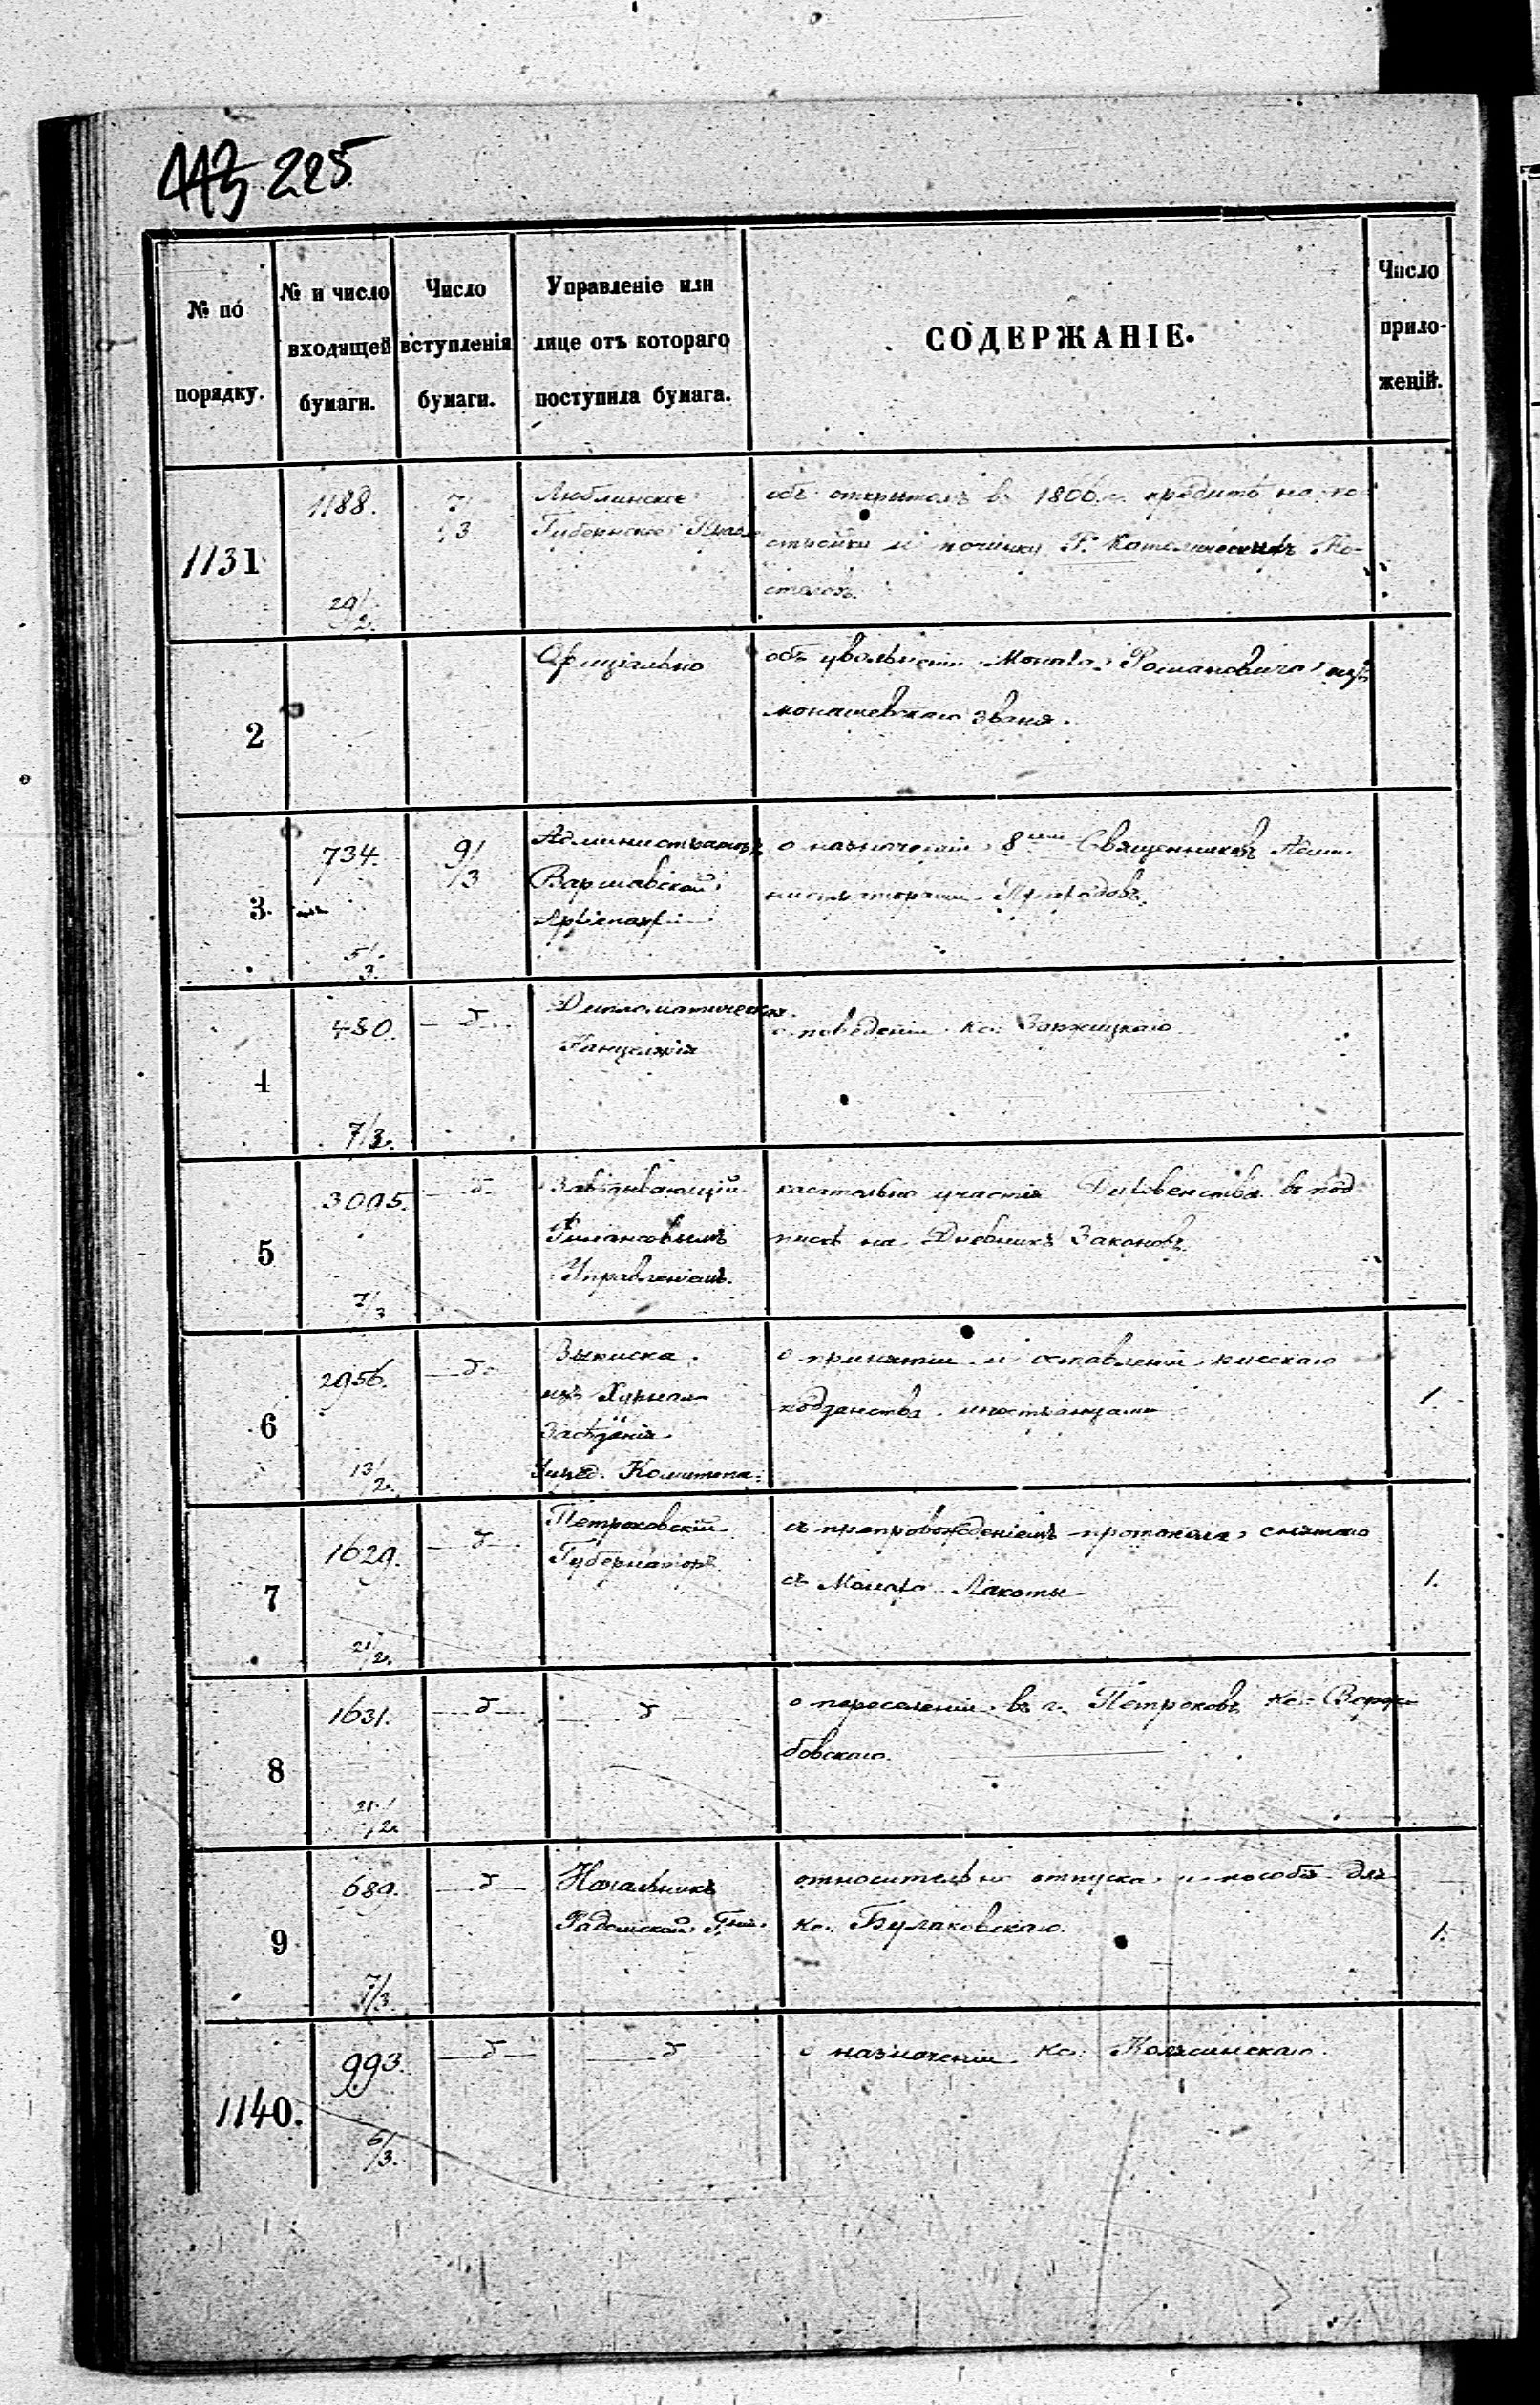 225
№ по порядку.
№ и число входящей бумаги.
Число вступленія бумаги.
Управленіе или лице отъ котораго поступила бумага.
СОДЕРЖАНІЕ.
Число приложеній.
1131
1188.
29/2.
7/3.
Люблинское
Губернское Правл.
объ открытомъ въ 1866 г. кредитѣ на по-
стройки и починку Р. Католическихъ Ко-
стеловъ.
2
Офиціально
объ увольненіи Монаха Романовича изъ
монашевскаго званія.
3.
734.
5/3.
9/3
Администраторъ
Варшавской
Архіепархіи
о назначеніи 8ми Священниковъ Адми-
нистраторами Приходовъ.
4
480.
7/3.
— δ —
Дипломатическая
Канцелярія
о поведеніи Кс. Заржицкаго
5
3095.
7/3
— δ —
Завѣдывающій
Финансовымъ
Управленіемъ.
касательно участія Духовенства въ под-
пискѣ на Дневникъ Законовъ.
6
2956.
13/2.
— δ —
Выписка
изъ Журнала
Засѣданія
Учред. Комитета.
о принятіи и оставленіи русскаго
подданства иностранцами
1.
7
1629.
21/2.
— δ —
Петроковскій
Губернаторъ
съ препровожденіемъ протокола снятаго
съ Монаха Лакоты
1.
8
1631.
21/2.
— δ —
— δ —
о переселеніи въ г. Петроковъ Кс.
бовскаго.
9
689.
7/3.
— δ —
Начальникъ
Радомской Гніи.
относительно отпуска и пособія для
Кс. Булаковскаго.
1.
1140.
993.
6/3.
— δ —
— δ —
о назначеніи Кс.